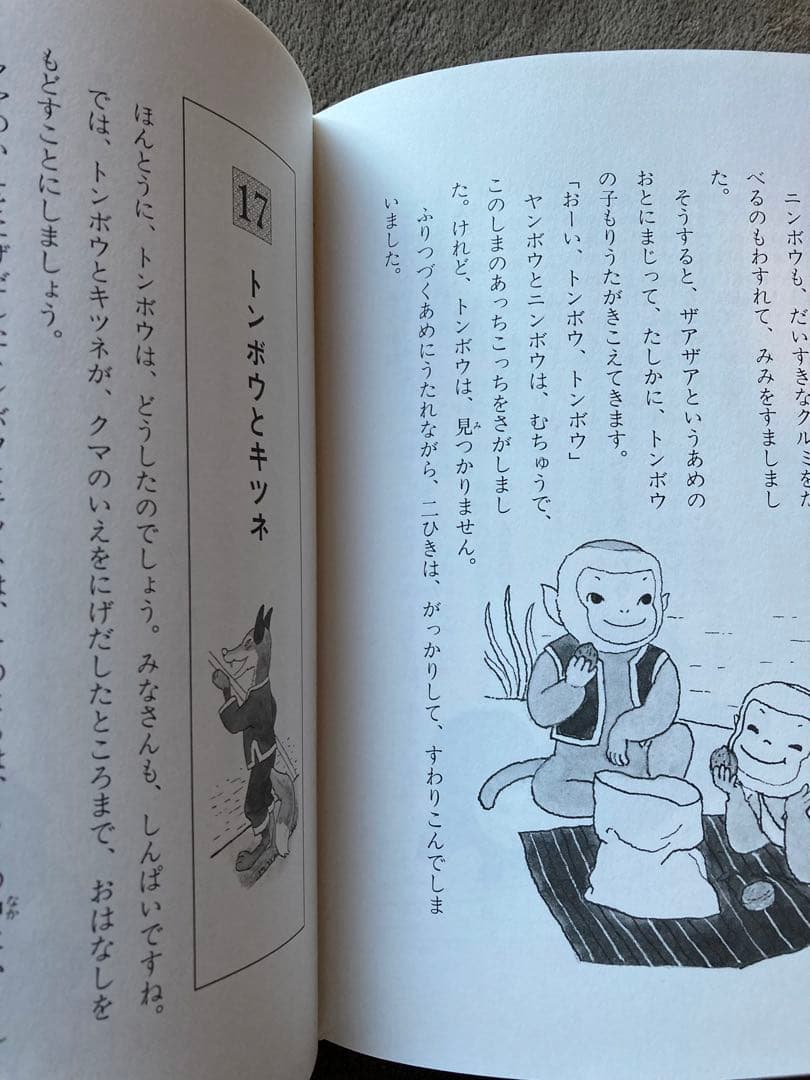 ニンボウも、だいすきなクルミをた
べるのもわすれて、みみをすましまし
た。
そうすると、ザアザアというあめの
おとにまじって、たしかに、トンボウ
の子もりうたがきこえてきます。
「おーい、トンボウ、トンボウ」
ヤンボウとニンボウは、むちゅうで、
このしまのあっちこっちをさがしまし
た。けれど、トンボウは、見つかりません。
み
ふりつづくあめにうたれながら、二ひきは、がっかりして、すわりこんでしま
いました。
17
トンボウとキツネ
ほんとうに、トンボウは、どうしたのでしょう。みなさんも、しんぱいですね。
では、トンボウとキツネが、クマのいえをにげだしたところまで、おはなしを
もどすことにしましょう。
なか